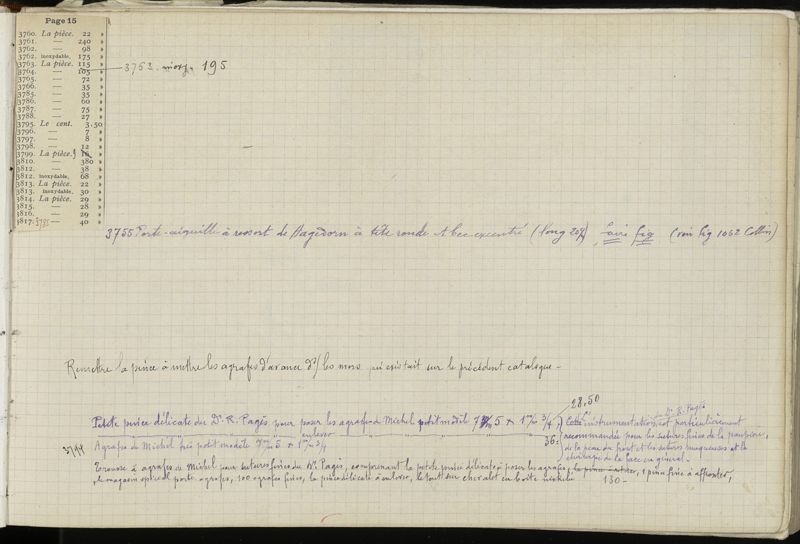 Page 15
3760. La pièce. 22 »
3761. — 240 »
3762. — 98 »
3762. inoxydable. 175 »
3763. La pièce. 115 »
3764. — 105 »
3765. — 72 »
3766. — 35 »
3785. — 35 »
3786. — 60 »
3787. — 75 »
3788. — 27 »
3795. Le cent. 3.50
3796. — 7 »
3797. — 8 »
3798. — 12 »
3799. La pièce. »
3810. — 380 »
3812. — 38 »
3812. inoxydable. 68 »
3813. La pièce. 22 »
3813. inoxydable. 30 »
3814. La pièce. 29 »
3815. — 28 »
3816. — 29 »
3817. — 40 »
3763 inoxy. 195
3755 Porte-aiguille à ressort de Hagedorn à tête ronde et bec excentré (long 20%) faire fig (voir fig 1062 Collin)
Remettre la pince à mettre les agrafes d'avance s/ les mors qui existait sur le précédent catalogue -
28.50
Petite pince délicate du Dr. R. Pagès pour poser les agrafes de Michel petit modèl 7 m/m 5 x 1 m/m 3/4
enlever 36.
3744 Agrafes de Michel très petit modèle 7 m/m 5 x 1 m/m 3/4
du Dr R. Pagès
Cette instrumentation est particulièrement
recommandée pour les sutures fines de la paupière,
de la peau du front et les sutures muqueuses et la
chirurgie de la face en général -
Trousse à agrafes de Michel pour sutures fines du Dr Pagès, comprenant la petite pince délicate à poser les agrafes, 1 pince fine à affronter,
le magasin spécial porte agrafes, 100 agrafes fines, la pince délicate à enlever, le tout sur chevalet en boîte nickelée 130 -